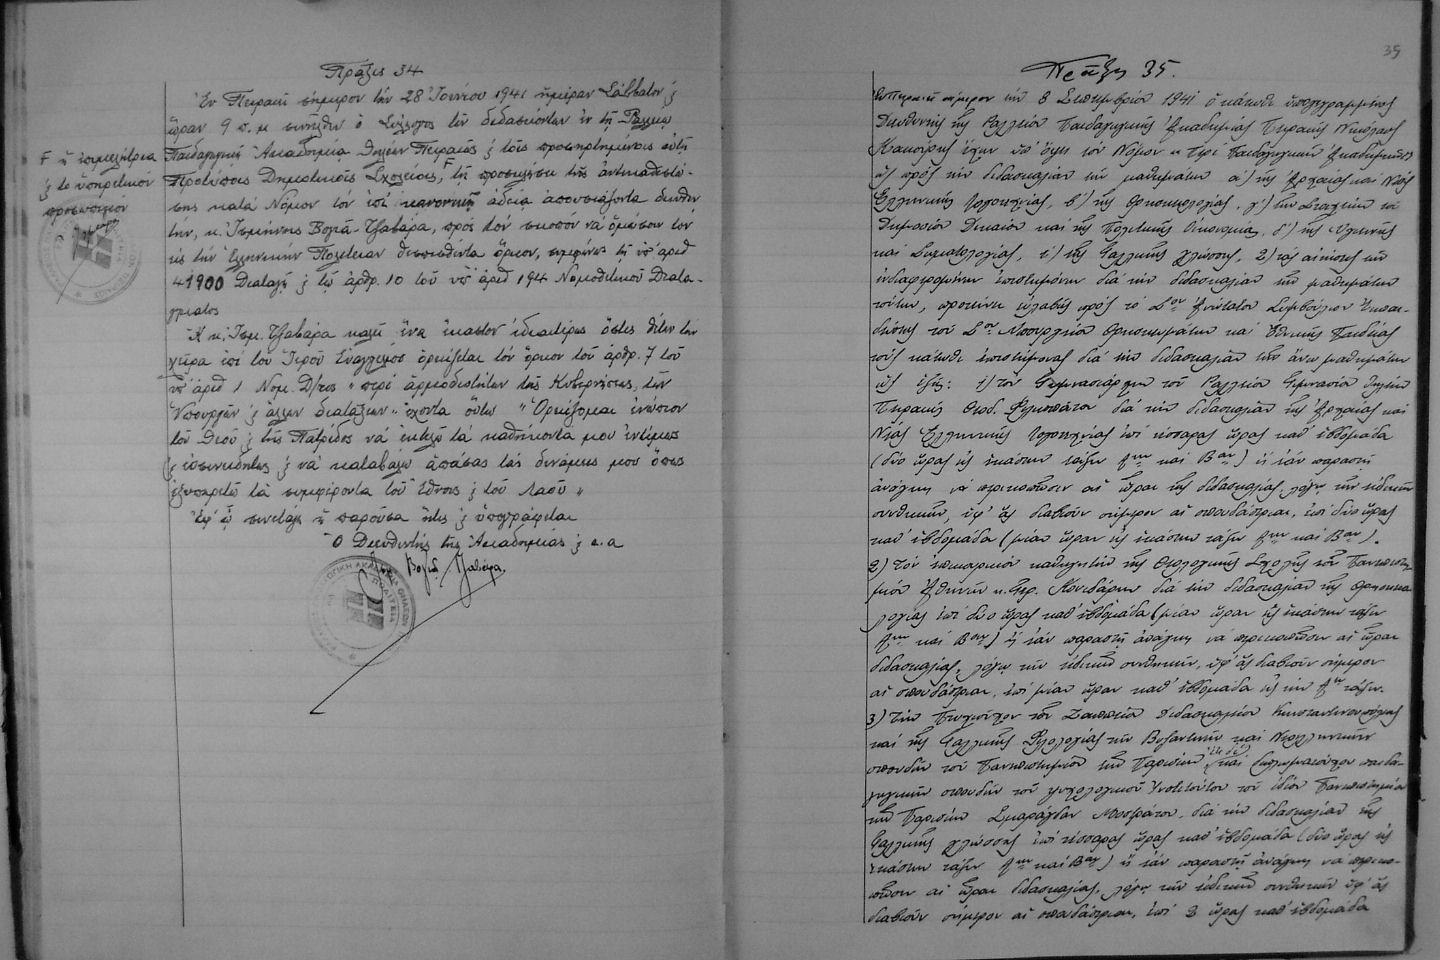 Πρᾶξις 34
Ἐν Πειραιεῖ σήμερον τὴν 28 Ἰουνίου 1941 ἡμέραν Σάββατον ἐ
ὥραν 9 π.μ συνῆλθεν ὁ Σύλλογος τῶν διδασκόντων ἐν τῇ Ραλλείῳ
Παιδαγωγικῇ Ἀκαδημίᾳ Θηλέων Πειραιῶς ἐ τοῖς προσηρτημένοις αὐτῇ
Προτύποις Δημοτικοῖς Σχολείοις, τῇ προσκλήσει τῆς ἀντικαθιστώ-
σης κατὰ Νόμον τὸν ἐπὶ κανονικῇ ἀδείᾳ ἀπουσιάζοντα διευθυν
τήν, κ. Ἰσμήνης Βογιᾶ-Τζαβάρα, πρὸς τὸν σκοπὸν νὰ ὁμόσωσι τὸν
εἰς τὴν Ἑλληνικὴν Πολιτείαν θεσπισθέντα ὅρκον, συμφώνως τῇ ὑπ' ἀριθ
41900 Διαταγῇ ἐ τῷ ἄρθρ. 10 τοῦ ὑπ' ἀριθ 194 Νομοθετικοῦ Διατά-
γματος
Ἡ κ. Ἰσμ. Τζαβάρα καλεῖ ἕνα ἕκαστον ἰδιαιτέρως ὅστις θέτων τὴν
χεῖρα ἐπὶ τοῦ Ἱεροῦ Εὐαγγελίου ὁρκίζεται τὸν ὅρκον τοῦ ἄρθρ. 7 τοῦ
ὑπ' ἀριθ 1 Νομ. Δ/τος " περὶ ἁρμοδιοτήτων τῆς Κυβερνήσεως, τῶν
Ὑπουργῶν ἐ ἄλλων διατάξεων " ἔχοντα οὕτω " Ὁρκίζομαι ἐνώπιον
τοῦ Θεοῦ ἐ τῆς Πατρίδος νὰ ἐκτελῶ τὰ καθήκοντά μου ἐντίμως
ἐ εὐσυνειδήτως ἐ νὰ καταβάλω ἁπάσας τὰς δυνάμεις μου ὅπως
ἐξυπηρετῶ τὰ συμφέροντα τοῦ Ἔθνους ἐ τοῦ Λαοῦ "
Ἐφ' ᾧ συνετάγη ἡ παροῦσα ἥτις ἐ ὑπογράφεται
Ὁ Διευθυντὴς τῆς Ἀκαδημίας ἐ α.α
Βογιᾶ Τζαβάρα
F ἡ ἐπιμελήτρια
ἐ τὸ ὑπηρετικὸν
προσωπικόν
35
Πρᾶξις 35.
Ἐν Πειραιεῖ σήμερον τὴν 8 Σεπτεμβρίου 1941 ὁ κάτωθι ὑπογεγραμμένος
Διευθυντὴς τῆς Ραλλείου Παιδαγωγικῆς Ἀκαδημίας Πειραιῶς Νικόλαος
ἔχων ὑπ' ὄψει τὸν Νόμον « Περὶ Παιδαγωγικῶν Ἀκαδημιῶν»
ὡς πρὸς τὴν διδασκαλίαν τῶν μαθημάτων α') τῆς Ἀρχαίας καὶ Νέας
Ἑλληνικῆς Λογοτεχνίας, β') τῆς Θρησκειολογίας, γ') τῶν Στοιχείων τοῦ
Δημοσίου Δικαίου καὶ τῆς Πολιτικῆς Οἰκονομίας, δ') τῆς Ὑγιεινῆς
καὶ Σωματολογίας, ε') τῆς Γαλλικῆς γλώσσης, 2) τὰς αἰτήσεις τῶν
ἐνδιαφερομένων ἐπιστημόνων διὰ τὴν διδασκαλίαν τῶν μαθημάτων
τούτων, προτείνει εὐλαβῶς πρὸς τὸ Σον Ἀνώτατον Συμβούλιον Ἐκπαι-
δεύσεως τοῦ Σου Ὑπουργείου Θρησκευμάτων καὶ Ἐθνικῆς Παιδείας
τοὺς κάτωθι ἐπιστήμονας διὰ τὴν διδασκαλίαν τῶν ἄνω μαθημάτων
ὡς ἑξῆς: 1) τὸν Γυμνασιάρχην τοῦ Ραλλείου Γυμνασίου Θηλέων
Πειραιῶς Θεοδ. διὰ τὴν διδασκαλίαν τῆς Ἀρχαίας καὶ
Νέας Ἑλληνικῆς Λογοτεχνίας ἐπὶ τέσσαρας ὥρας καθ' ἑβδομάδα
(δύο ὥρας εἰς ἑκάστην τάξιν Αην καὶ Βαν) ἢ ἐὰν παραστῇ
ἀνάγκη νὰ περικοπῶσιν αἱ ὧραι τῆς διδασκαλίας, λόγῳ τῶν εἰδικῶν
συνθηκῶν, ὑφ' ἃς διαβιοῦν σήμερον αἱ σπουδάστριαι, ἐπὶ δύο ὥρας
καθ' ἑβδομάδα (μίαν ὥραν εἰς ἑκάστην τάξιν Αην καὶ Βαν).
2) Τὸν ἐπικουρικὸν καθηγητὴν τῆς Θεολογικῆς Σχολῆς τοῦ Πανεπιστη-
μίου Ἀθηνῶν κ. Γερ. Κονιδάρην διὰ τὴν διδασκαλίαν τῆς Θρησκειο-
λογίας ἐπὶ δύο ὥρας καθ' ἑβδομάδα (μίαν ὥραν εἰς ἑκάστην τάξιν
Αην καὶ Βαν) ἢ ἐὰν παραστῇ ἀνάγκη νὰ περικοπῶσιν αἱ ὧραι
διδασκαλίας, λόγῳ τῶν εἰδικῶν συνθηκῶν, ὑφ' ἃς διαβιοῦν σήμερον
αἱ σπουδάστριαι, ἐπὶ μίαν ὥραν καθ' ἑβδομάδα εἰς τὴν Αην τάξιν.
3) Τὴν Πτυχιοῦχον τοῦ Ζαππείου Διδασκαλείου Κωνσταντινουπόλεως
καὶ τῆς Γαλλικῆς Φιλολογίας τῶν Βυζαντινῶν καὶ Νεοελληνικῶν
σπουδῶν τοῦ Πανεπιστημίου τῶν Παρισίων καὶ διπλωματοῦχον παιδα-
γωγικῶν σπουδῶν τοῦ ψυχολογικοῦ Ἰνστιτούτου τοῦ ἰδίου Πανεπιστημίου
τῶν Παρισίων Σμαράγδαν διὰ τὴν διδασκαλίαν τῆς
Γαλλικῆς γλώσσης ἐπὶ τέσσαρας ὥρας καθ' ἑβδομάδα (δύο ὥρας εἰς
ἑκάστην τάξιν Αην καὶ Βαν) ἢ ἐὰν παραστῇ ἀνάγκη νὰ περικο-
πῶσιν αἱ ὧραι διδασκαλίας, λόγῳ τῶν εἰδικῶν συνθηκῶν ὑφ' ἃς
διαβιοῦν σήμερον αἱ σπουδάστριαι, ἐπὶ 2 ὥρας καθ' ἑβδομάδα